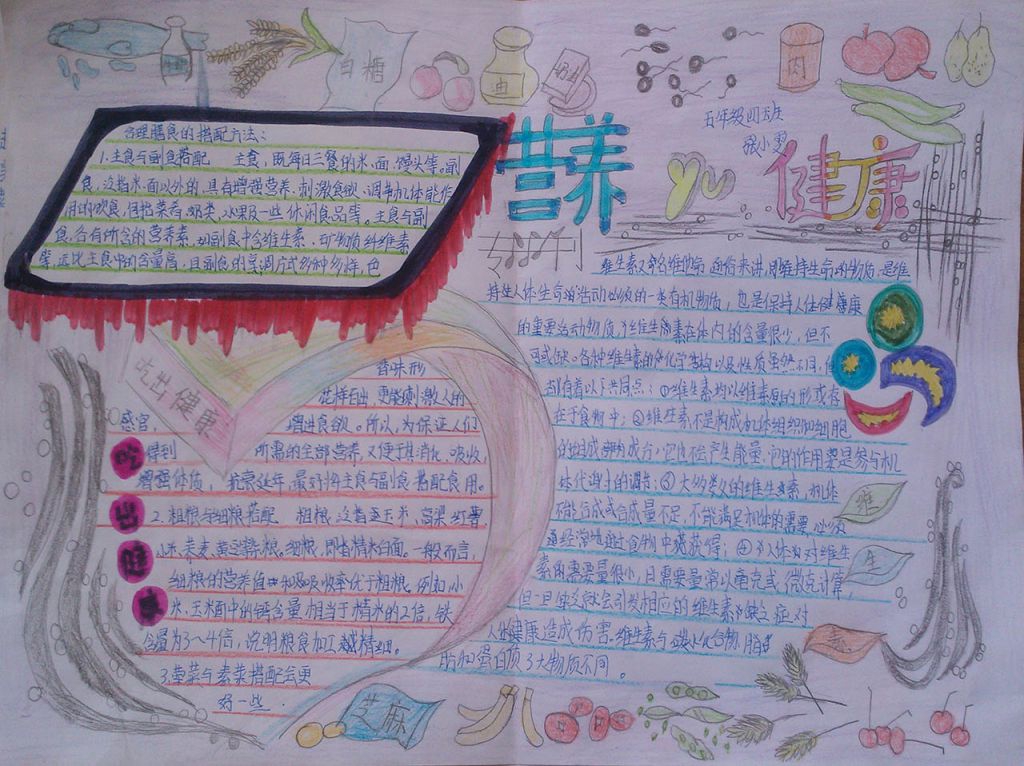 白糖
油
奶粉
肉
五年级四班
营养
与
健康
专刊
合理膳食的搭配方法:
1.主食与副食搭配 主食,既每日三餐的米、面、馒头等。副
食,泛指米、面以外的,具有增强营养、刺激食欲、调节机体能作
用的饮食,包括菜肴、奶类、水果及一些休闲食品等。主食与副
食,各有所含的营养素,如副食中含维生素、矿物质纤维素
等,远比主食中的含量高,且副食的烹调方式多种多样,色
香味形
花样百出,更能刺激人的
感官, 增进食欲。所以,为保证人们
得到 所需的全部营养,又便于其消化、吸收,
增强体质、抗衰延年,最好将主食与副食搭配食用。
2.粗粮与细粮搭配 粗粮,泛指玉米、高粱、红薯
小米、荞麦、黄豆杂粮,细粮,即指精米白面。一般而言,
细粮的营养价值和吸收率优于粗粮,例如小
米、玉米面中的钙含量相当于精米的2倍,铁
含量为3~4倍,说明粮食加工越精细。
3.荤菜与素菜搭配会更
好一些.
吃出健康
吃
出
健
康
维生素又名维他命,通俗来讲,即维持生命的物质,是维
持人体生命的活动必须的一类有机物质,也是保持人体健康
的重要活动物质。维生素在体内的含量很少,但不
可或缺。各种维生素的化学结构以及性质虽然不同,但
却有着以下共同点:①维生素均以维生素原的形式存
在于食物中;②维生素不是构成机体组织和细胞
的组成成分,它也不会产生能量,它的作用主要是参与机
体代谢的调节;③大多数的维生素,机体
不能合成或合成量不足,不能满足机体的需要,必须
通经常通过食物中获获得;④人体对维生
素的需要量很小,日需要量常以毫克或微克计算,
但一旦缺乏就会引发相应的维生素缺乏症,对
人体健康造成伤害。维生素与碳水化合物、脂肪
肪和蛋白质3大物质不同。
维
生
素
芝麻